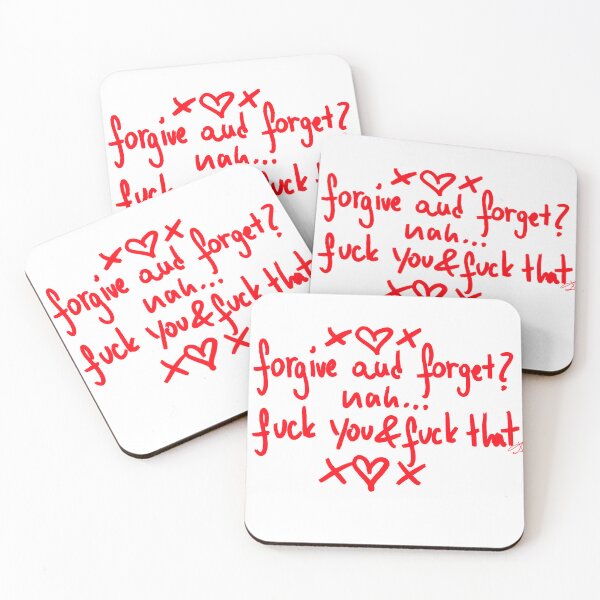 x♡x
forgive and forget?
nah...
fuck
x♡x
forgive and forget?
nah...
fuck you & fuck that
x♡x
x♡x
forgive and forget?
nah...
fuck you & fuck that
x♡x
x♡x
forgive and forget?
nah...
fuck you & fuck that
x♡x